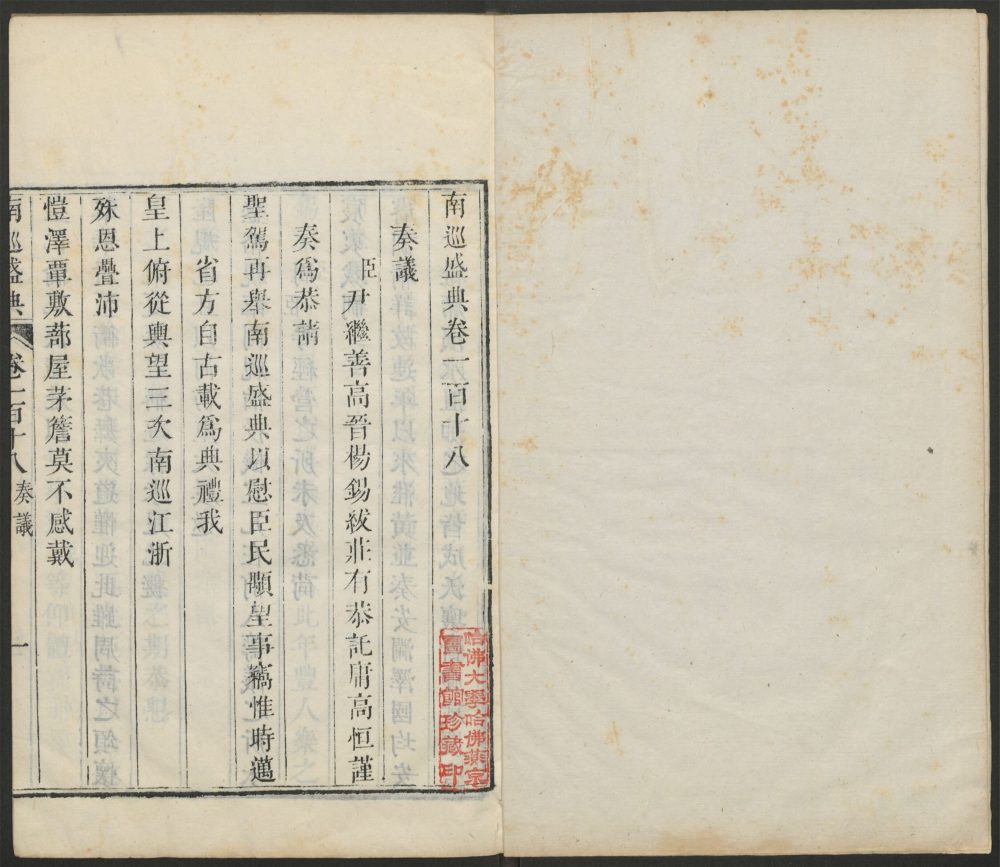 南巡盛典卷一百十八
奏議
臣尹繼善高晉楊錫紱莊有恭託庸高恒謹
奏爲恭請
聖駕再舉南巡盛典以慰臣民顒望事竊惟時邁
省方自古載爲典禮我
皇上俯從輿望三次南巡江浙
殊恩疊沛
愷澤覃敷蔀屋茅簷莫不感戴
南巡盛典
卷一百十八
奏議
一
哈佛大學哈佛燕京
圖書館珍藏印